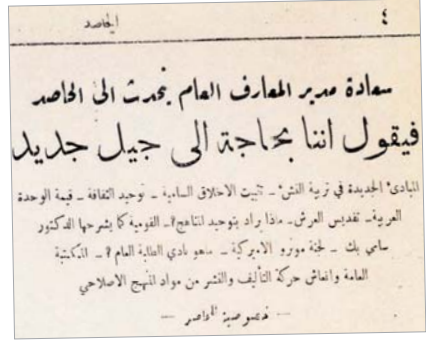 ٤
الحاصد
سعادة مدير المعارف العام يتحدث الى الحاصد
فيقول اننا بحاجة الى جيل جديد
المبادئ الجديدة في تربية النشء ـ تثبيت الاخلاق السامية ـ توحيد الثقافة ـ قيمة الوحدة
العربية ـ تقديس العرش ـ ماذا يراد بتوحيد المناهج؟ ـ القومية كما يشرحها الدكتور
سامي بك ـ لجنة مونرو الاميركية ـ ماهو نادي الطلبة العام؟ ـ المكتبة
العامة وانعاش حركة التأليف والنشر من مواد المنهج الاصلاحي
— خصوصية للحاصد —